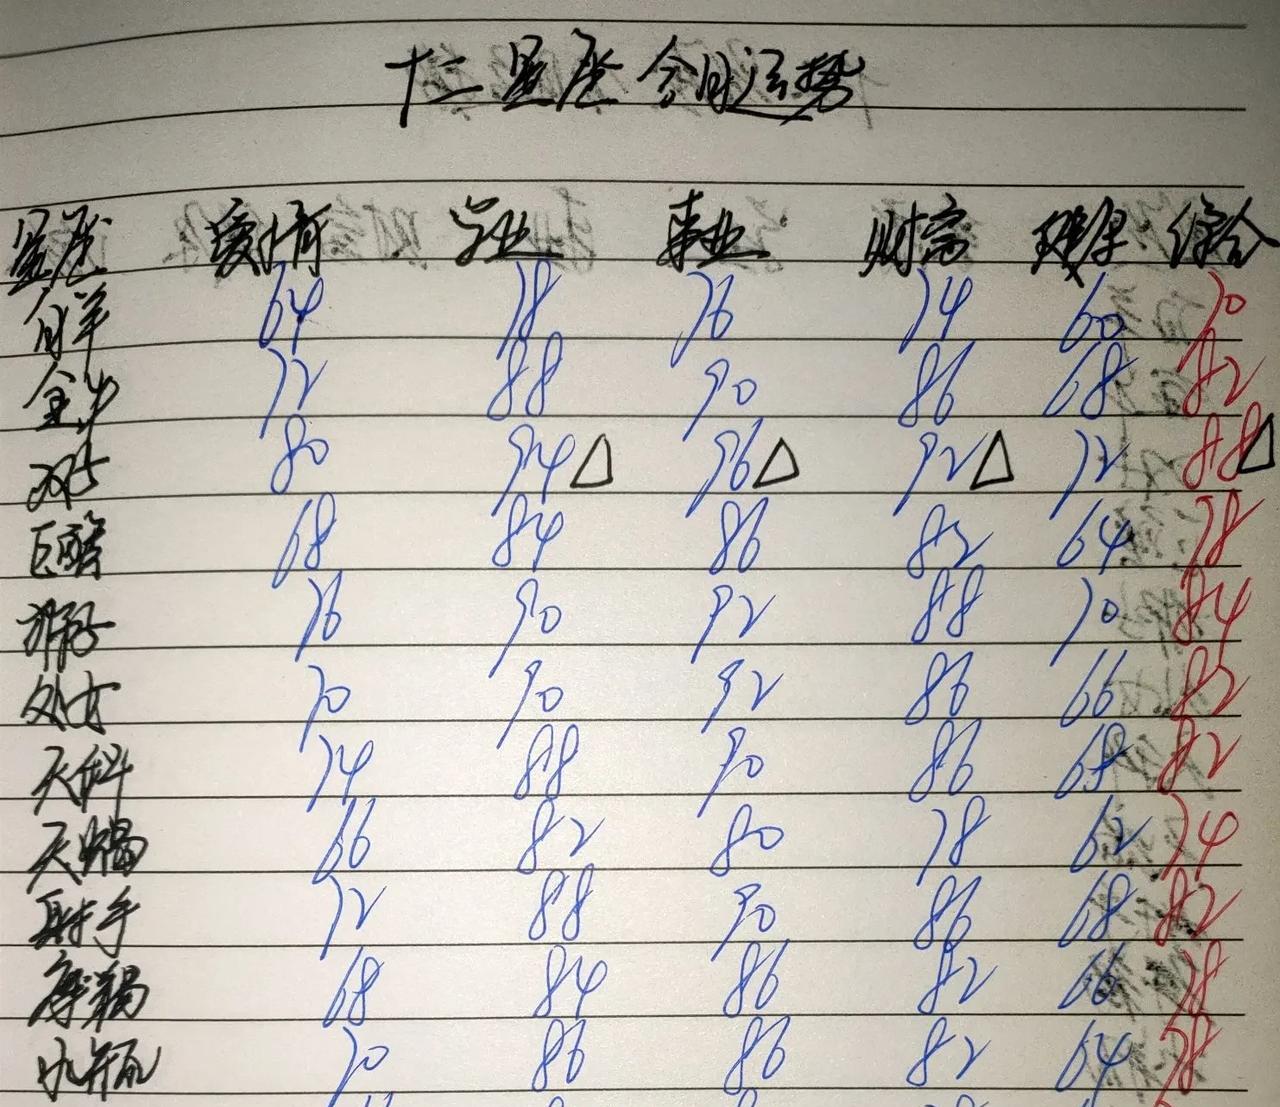 十二星座今日运势
星座 爱情 学业 事业 财富 健康 综合
白羊 64 78 76 74 60 70
金牛 72 88 90 86 68 82
双子 80 94△ 96△ 92△ 72 88△
巨蟹 68 84 86 82 64 78
狮子 76 90 92 88 70 84
处女 70 90 92 86 66 82
天秤 74 88 90 86 68 82
天蝎 66 82 80 78 62 74
射手 72 88 90 86 68 82
摩羯 68 84 86 82 66 78
水瓶 70 86 86 82 64 78